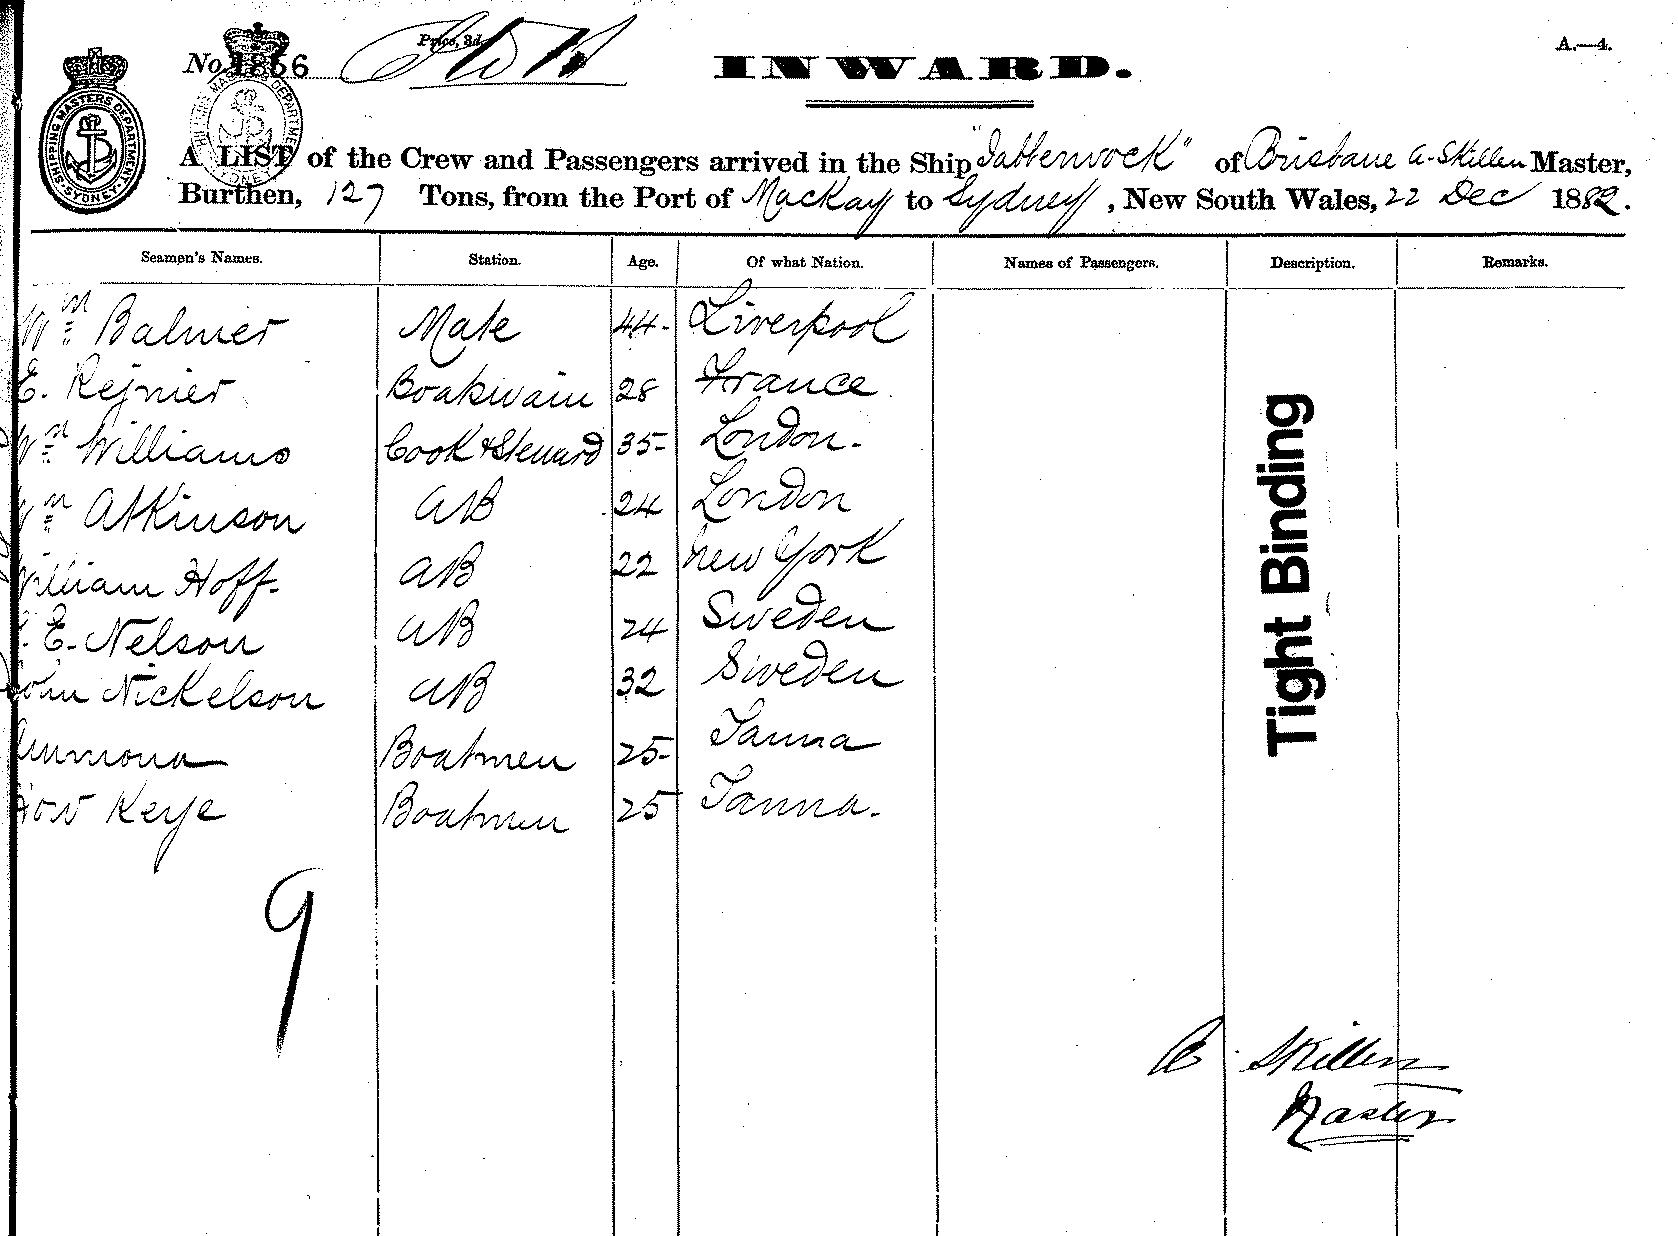 No. 1866
Price, 3d.
INWARD.
A.—4.
SHIPPING MASTERS DEPARTMENT SYDNEY
A LIST of the Crew and Passengers arrived in the Ship "Jabberwock" of Brisbane A. Skillen Master,
Burthen, 127 Tons, from the Port of Mackay to Sydney, New South Wales, 22 Dec 1882.
Seamen's Names. Station. Age. Of what Nation. Names of Passengers. Description. Remarks.
Wm Balmer Mate 44 Liverpool
E. Rejnier Boatswain 28 France
Wm Williams Cook & Steward 35 London.
Wm Atkinson AB 24 London
William Hoff AB 22 New York
E. Nelson AB 24 Sweden
John Nickelson AB 32 Sweden
Boatmen 25 Tanna
Keye Boatmen 25 Tanna.
9
Tight Binding
A. Skillen
Master